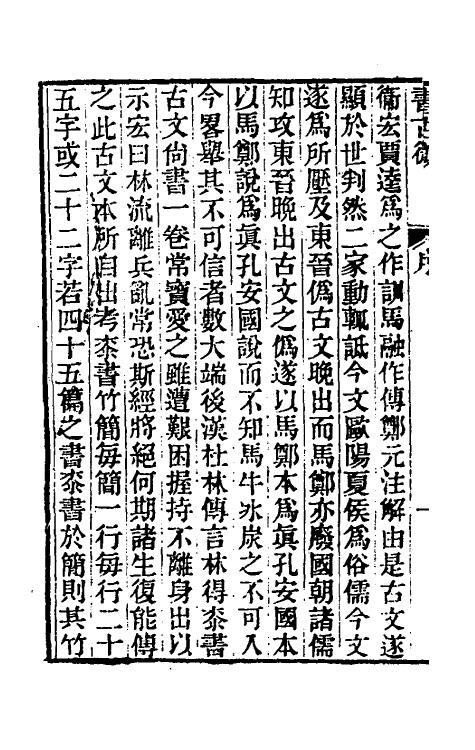 書古微 序 一
衞宏賈逵爲之作訓馬融作傳鄭元注解由是古文遂
顯於世判然二家動輒詆今文歐陽夏侯爲俗儒今文
遂爲所壓及東晉僞古文晚出而馬鄭亦廢國朝諸儒
知攻東晉晚出古文之僞遂以馬鄭本爲眞孔安國本
以馬鄭說爲眞孔安國說而不知馬牛氷炭之不可入
今畧舉其不可信者數大端後漢杜林傳言林得桼書
古文尙書一卷常寶愛之雖遭艱困握持不離身出以
示宏曰林流離兵亂常恐斯經將絕何期諸生復能傳
之此古文本所自出考桼書竹簡每簡一行每行二十
五字或二十二字若四十五篇之書桼書於簡則其竹